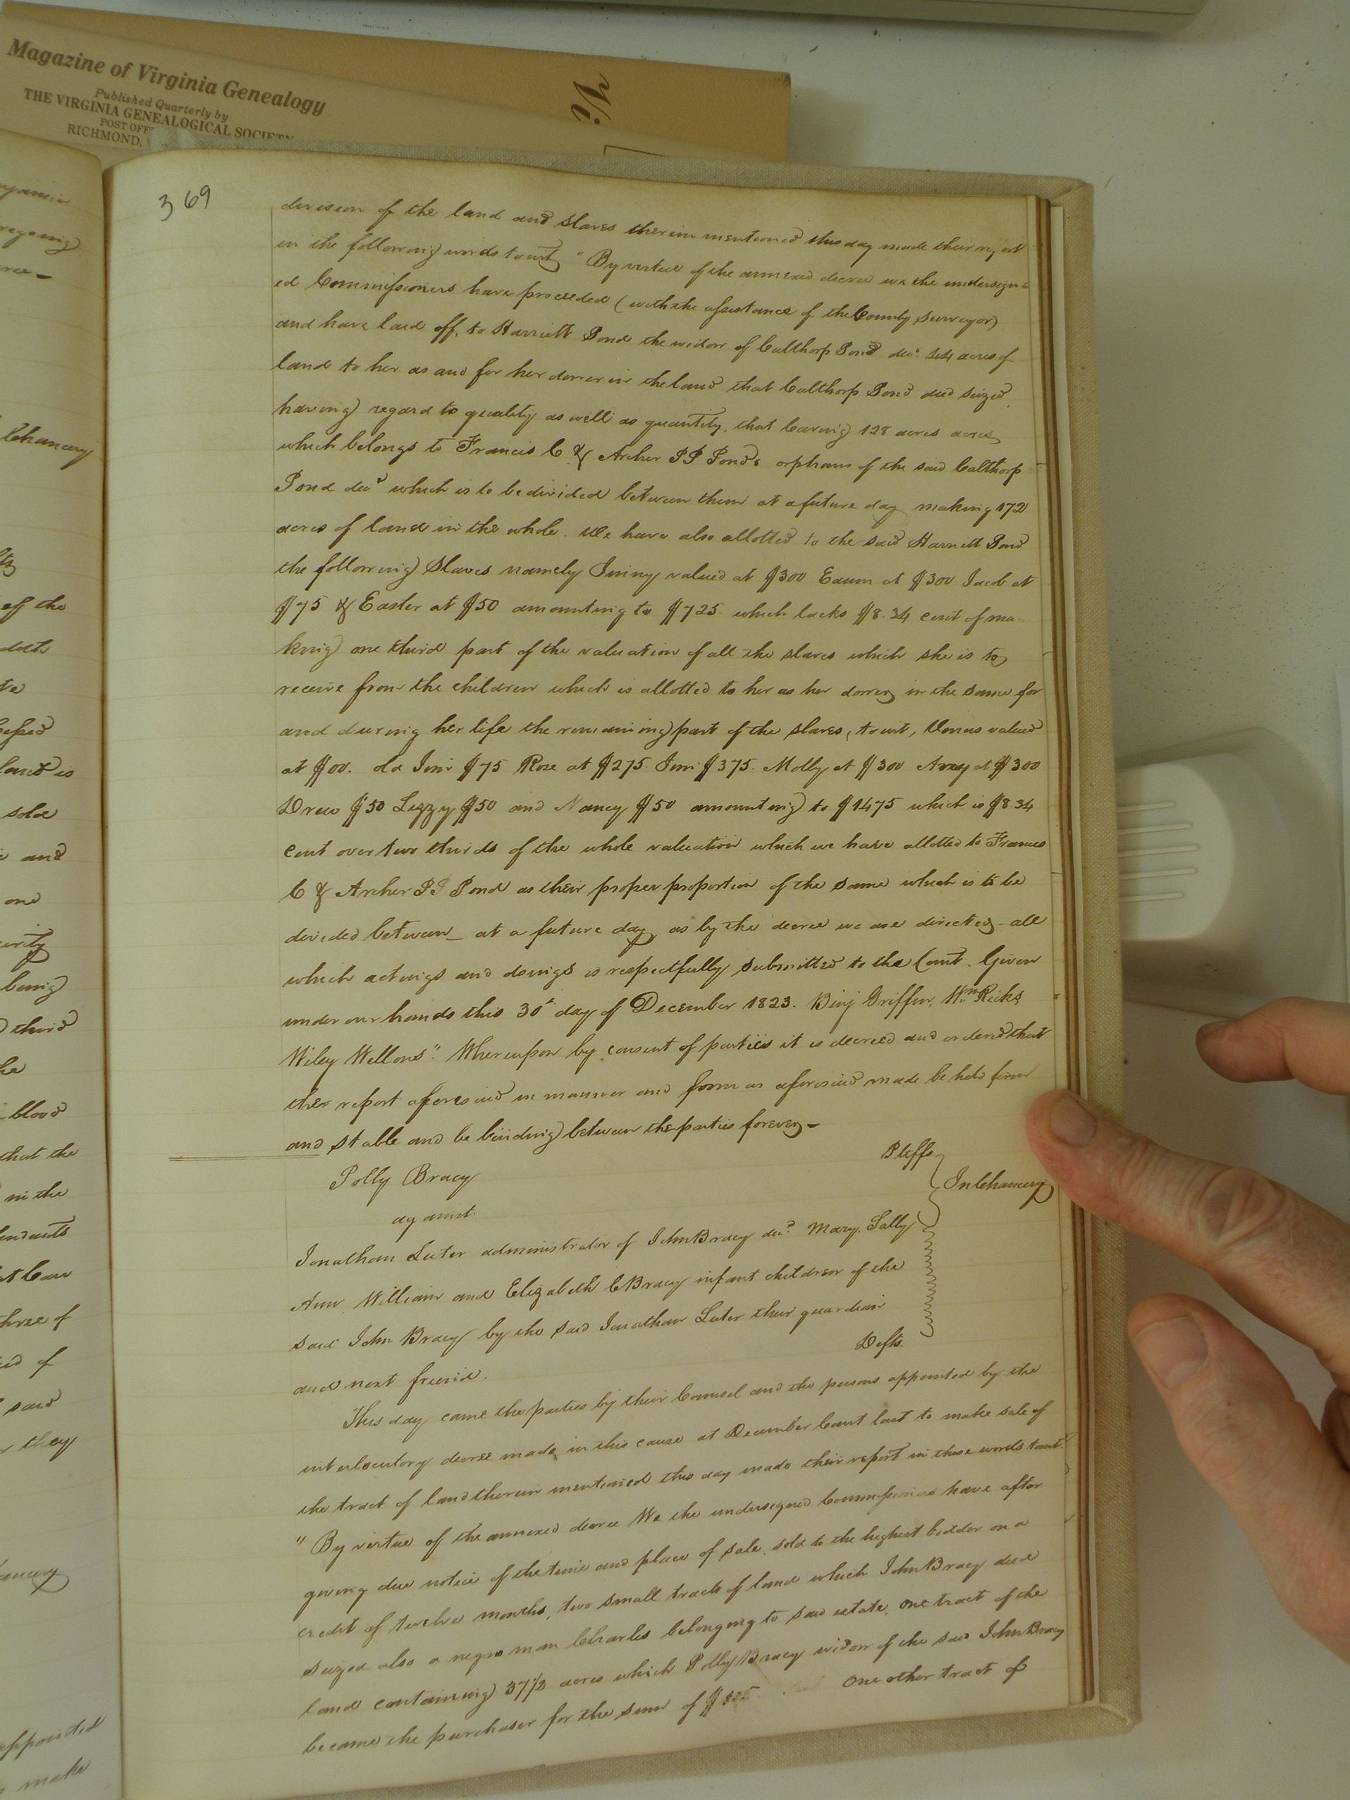 Magazine of Virginia Genealogy
Published Quarterly by
THE VIRGINIA GENEALOGICAL SOCIETY
POST OFF
RICHMOND,
369
division of the land and slaves therein mentioned this day made their report
in the following words towit "By virtue of the annexed decree we the undersign-
ed Commissioners have proceeded (with the assistance of the County surveyor)
and have laid off, to Harriett Pond the widow of Calthorp Pond decd. 44 acres of
land to her as and for her dower in the land that Calthorp Pond died seized
having regard to quality as well as quantity, that leaving 128 acres acres
which belongs to Francis C & Archer PP Ponds orphans of the said Calthorp
Pond decd which is to be divided between them at a future day making 172
acres of land in the whole. We have also allotted to the said Harriett Pond
the following Slaves namely valued at $300 at $300 Jacob at
$75 & Easter at $50 amounting to $725 which lacks $8.34 cent of ma-
king one third part of the valuation of all the slaves which she is to
receive from the children which is allotted to her as her dower in the same for
and during her life the remaining part of the slaves, towit, Venus valued
at $00. $75 Rose at $275. $375. Molly at $300 at $300
Drew $50 Lizzy $50 and Nancy $50 amounting to $1475 which is $8.34
cent over two thirds of the whole valuation which we have allotted to Frances
C & Archer P.P. Pond as their proper proportion of the same which is to be
divided between_ at a future day, as by the decree we are directed - all
which actings and doings is respectfully submitted to the Court. Given
under our hands this 30th day of December 1823. Binj Griffin, Wm Ricks
Wiley Wellons". Whereupon by consent of parties it is decreed and ordered that
the report aforesaid in manner and form as aforesaid made be held firm
and stable and be binding between the parties forever -
Polly Bracy Pltffs
against In Chancery
Jonathan Luter administrator of John Bracy decd. Mary, Sally
Ann, William and Elizabeth C Bracy infant children of the
said John Bracy by the said Jonathan Luter their guardian
and next friend. Defts.
This day came the parties by their Counsel and the persons appointed by the
interlocutory decree made in this cause at December Court last to make sale of
the tract of land therein mentioned this day made their report in these words towit
"By virtue of the annexed decree We the undersigned Commissioners have after
giving due notice of the time and place of sale, sold to the highest bidder on a
credit of twelve months, two small tracts of land which John Bracy died
seized also a negro man Charles belonging to said estate, one tract of the
land containing 37½ acres which Polly Bracy widow of the said John Bracy
became the purchaser for the sum of $ One other tract of